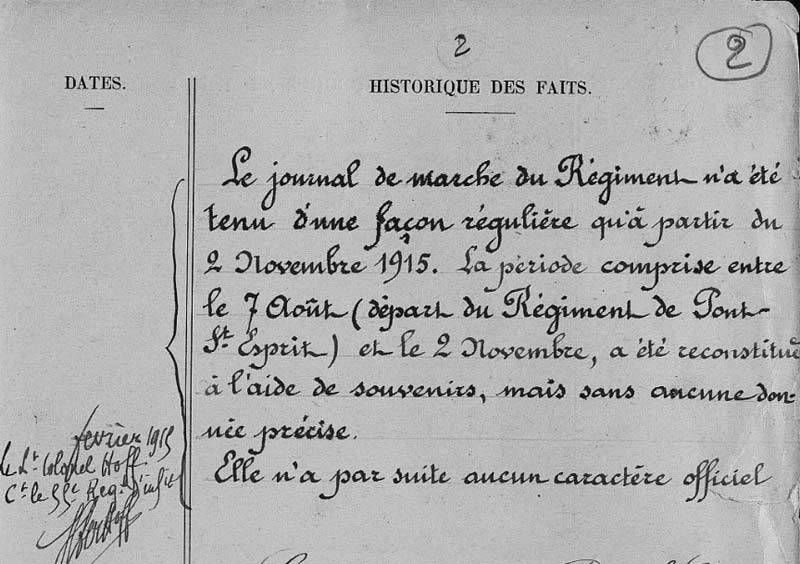 2
2
DATES.
HISTORIQUE DES FAITS.
Le journal de marche du Régiment n'a été
tenu d'une façon régulière qu'à partir du
2 Novembre 1915. La période comprise entre
le 7 Août (départ du Régiment de Pont-
St Esprit) et le 2 Novembre, a été reconstituée
à l'aide de souvenirs, mais sans aucune don-
née précise.
Elle n'a par suite aucun caractère officiel
février 1915
le Lt Colonel Hoff
Ct le 55e Reg. d'infie